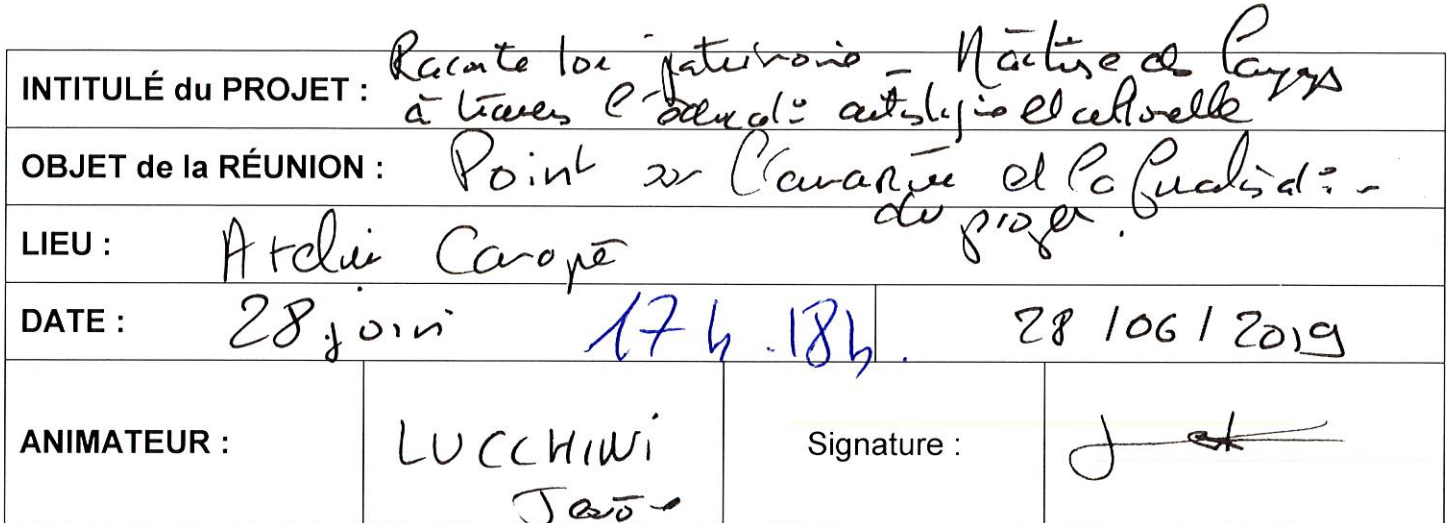 INTITULÉ du PROJET : Raconte toi patrimoine - Maîtrise des langages
à travers l'éducat° artistique et culturelle
OBJET de la RÉUNION : Point sur l'avancée et la finalisat°
du projet.
LIEU : Atelier Canopé
DATE : 28 juin 17h-18h. 28/06/2019
ANIMATEUR : LUCCHINI Signature :